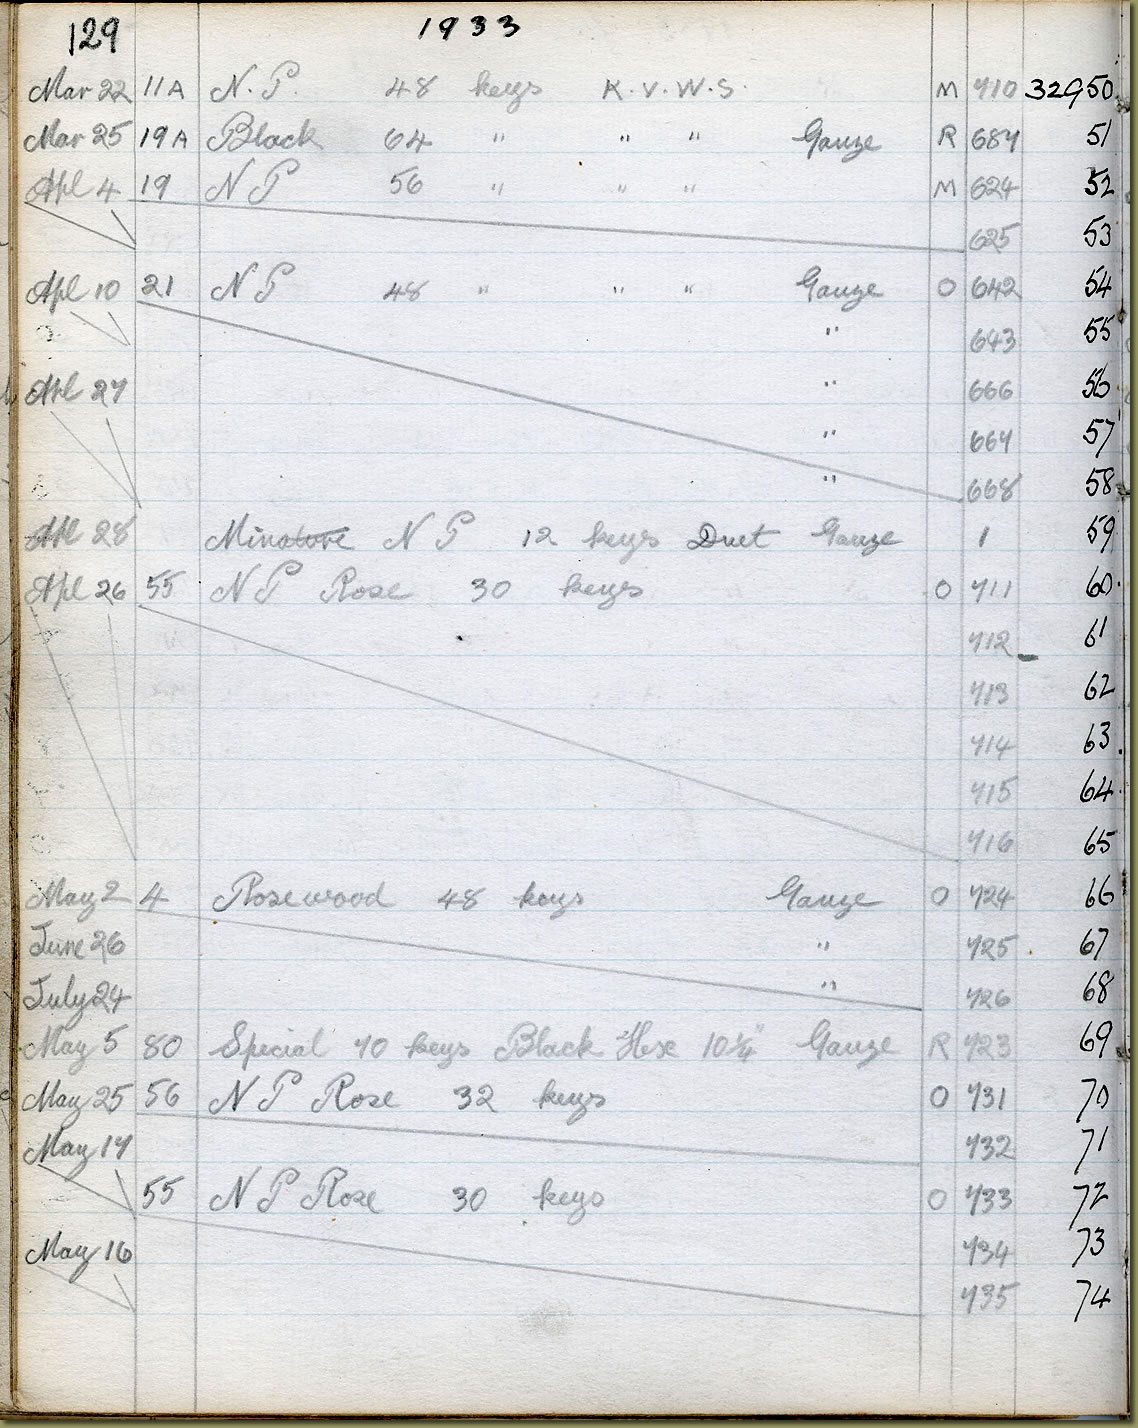 129 1933
Mar 22 11A N.P. 48 keys K.V.W.S. M 710 32950
Mar 25 19A Black 64 " " " Gauze R 687 51
Apl 4 19 N P 56 " " " M 624 52
625 53
Apl 10 21 N P 48 " " " Gauze O 642 54
" 643 55
Apl 27 " 666 56
" 667 57
" 668 58
Apl 28 Minature N P 12 keys Duet Gauze 1 59
Apl 26 55 N P Rose 30 keys O 711 60
712 61
713 62
714 63
715 64
716 65
May 2 4 Rosewood 48 keys Gauze O 724 66
June 26 " 725 67
July 24 " 726 68
May 5 80 Special 70 keys Black Hex 10¼" Gauze R 723 69
May 25 56 N P Rose 32 keys O 731 70
May 17 732 71
55 N P Rose 30 keys O 733 72
May 16 734 73
735 74